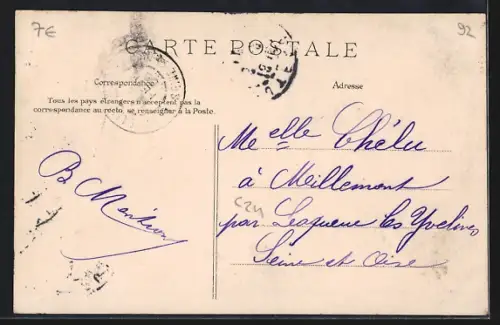 7€
92
CARTE POSTALE
Correspondance
Adresse
Tous les pays étrangers n'acceptent pas la
correspondance au recto, se renseigner à la Poste.
Melle Thélu
à Millemont
par La queue les Yvelines
Seine et Oise
B